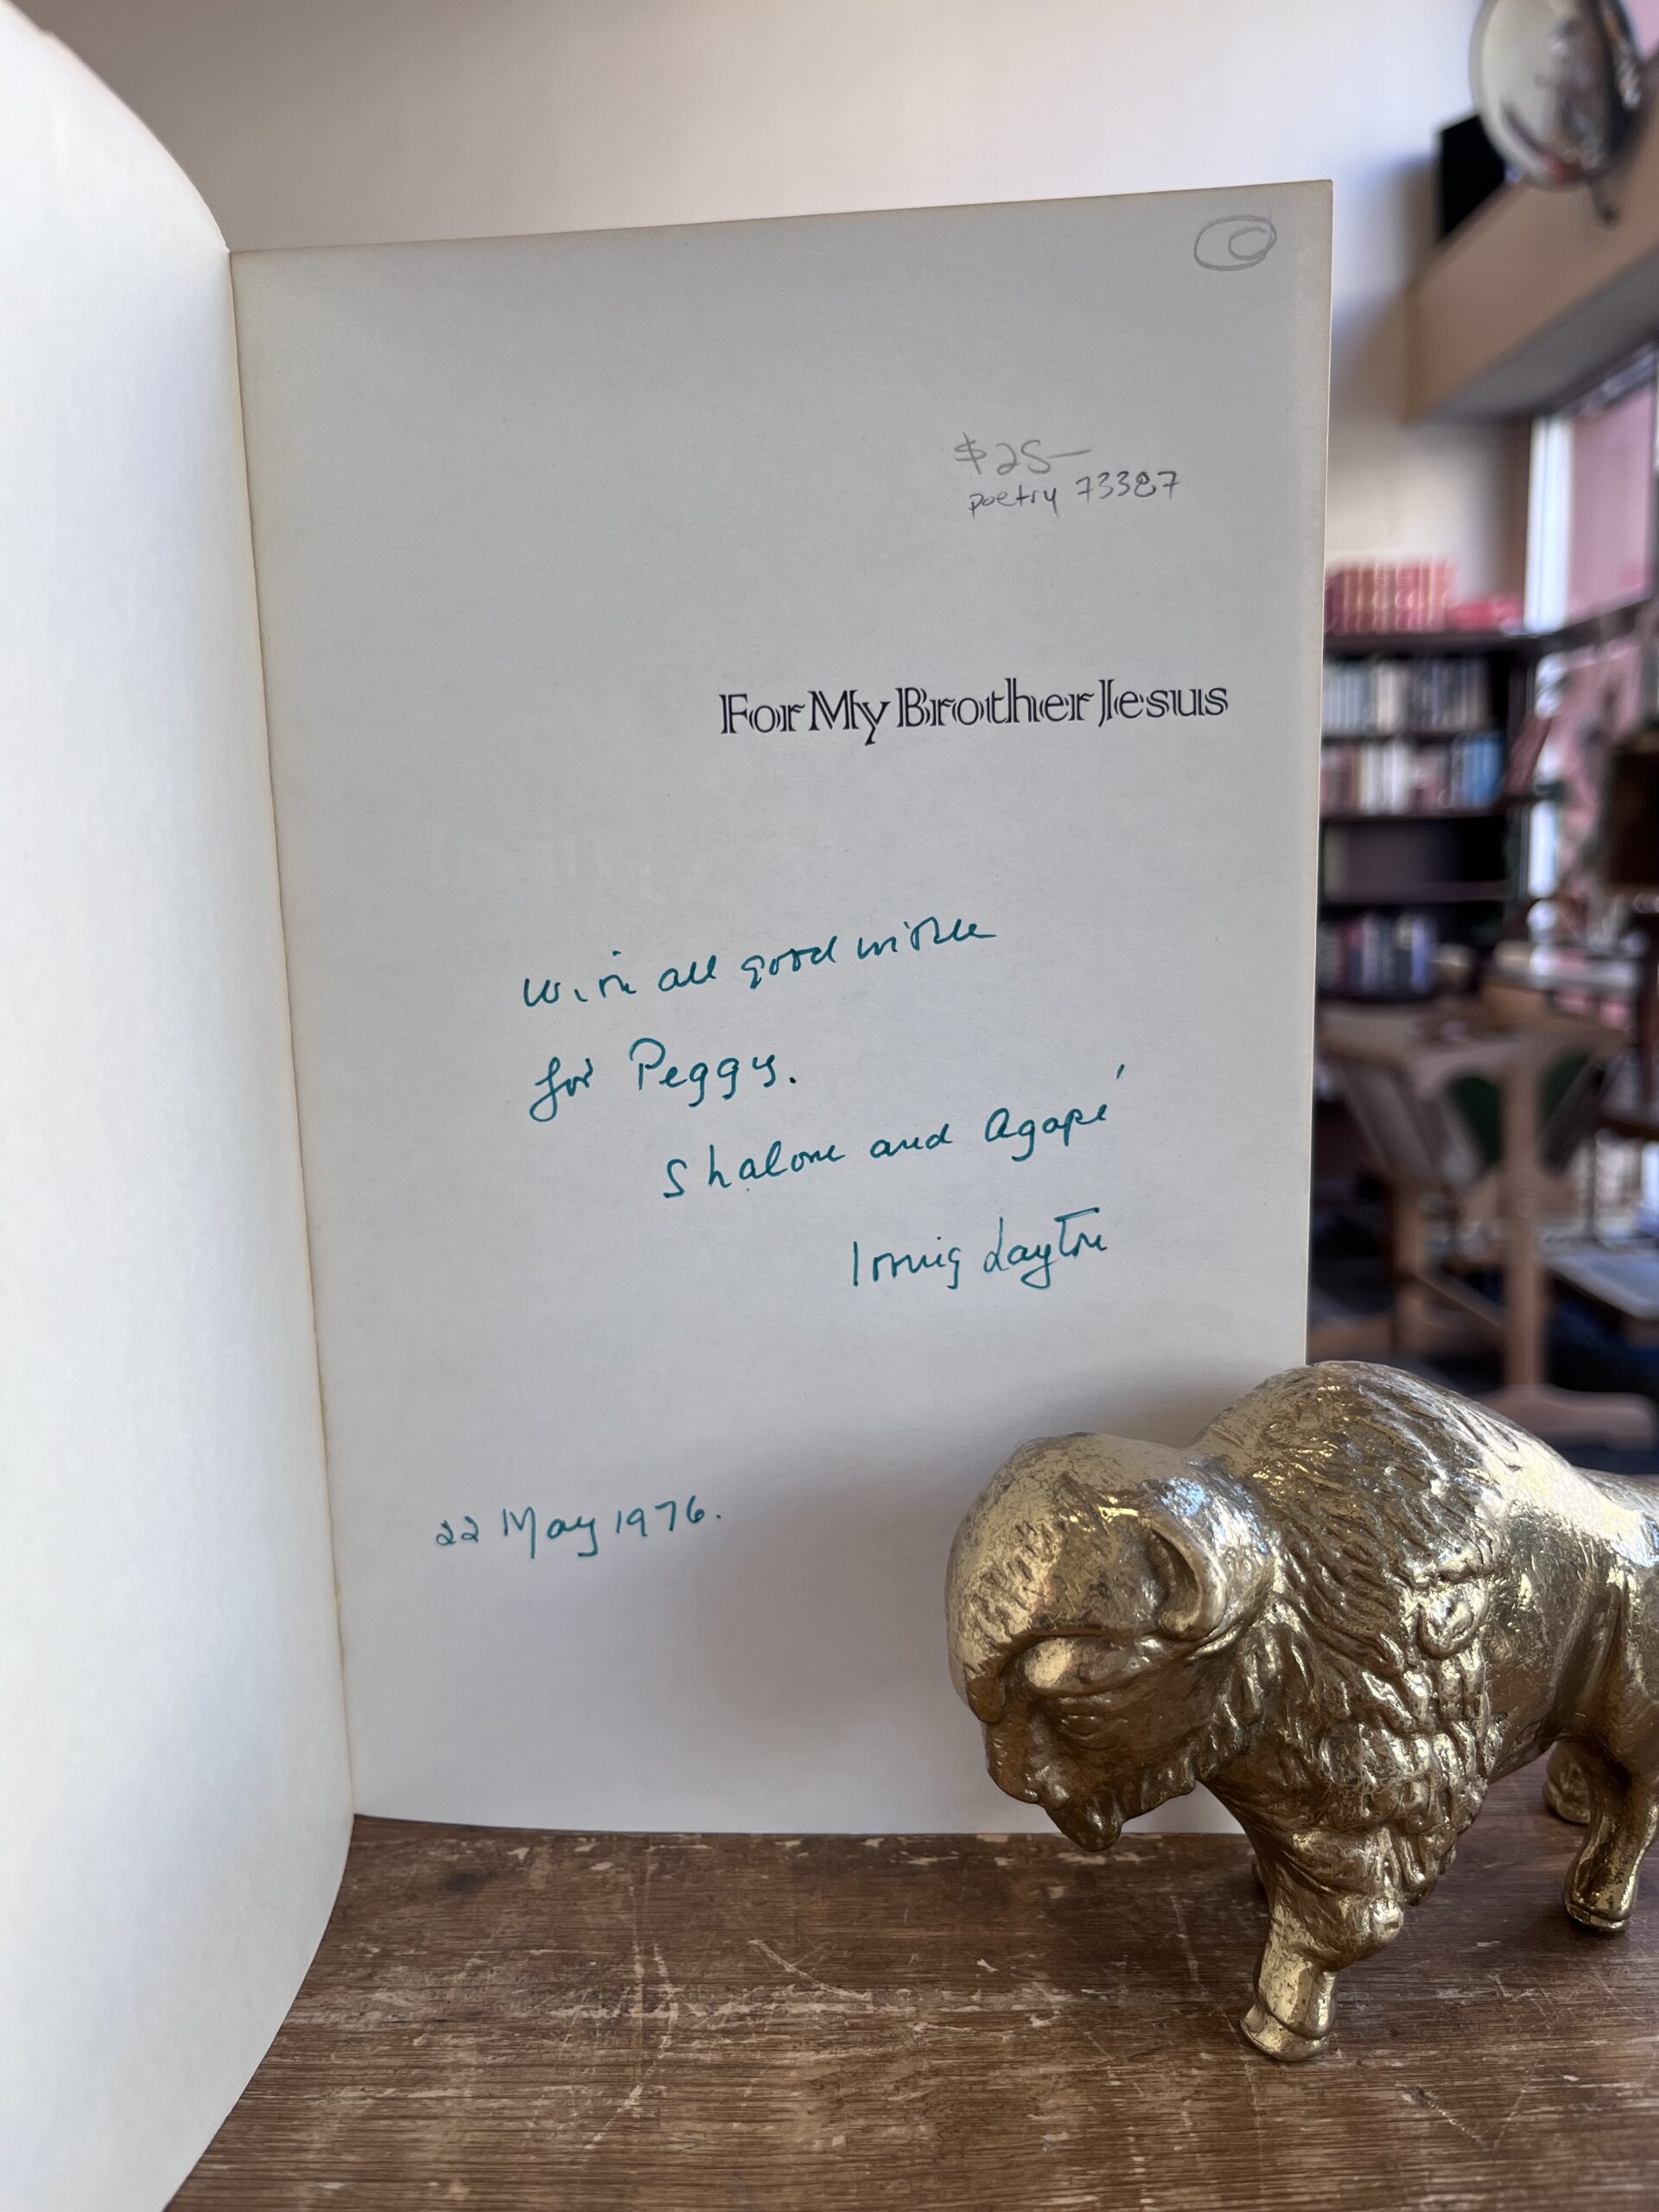 $25—
poetry 73387
For My Brother Jesus
With all good wishes
for Peggy.
Shalom and Agapé
Irving Layton
22 May 1976.